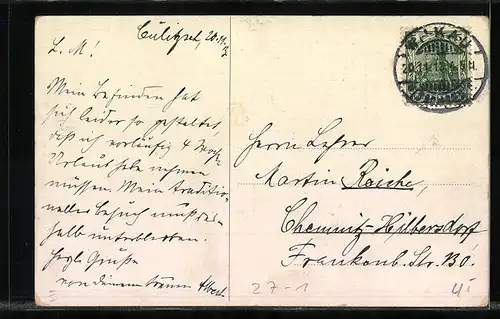 Culitzsch, 20.11.
L. M.!
Mein Befinden hat
sich leider so gestaltet,
daß ich vorläufig 4 Woch.
Urlaub habe nehmen
müssen. Mein traditio-
neller Besuch muß des-
halb unterbleiben.
Herzl. Grüße
von deinem treuen Albert.
WILKAU
Herrn Lehrer
Martin Raiche,
Chemnitz-Hilbersdorf
Frankenb. Str. 80.
27-1